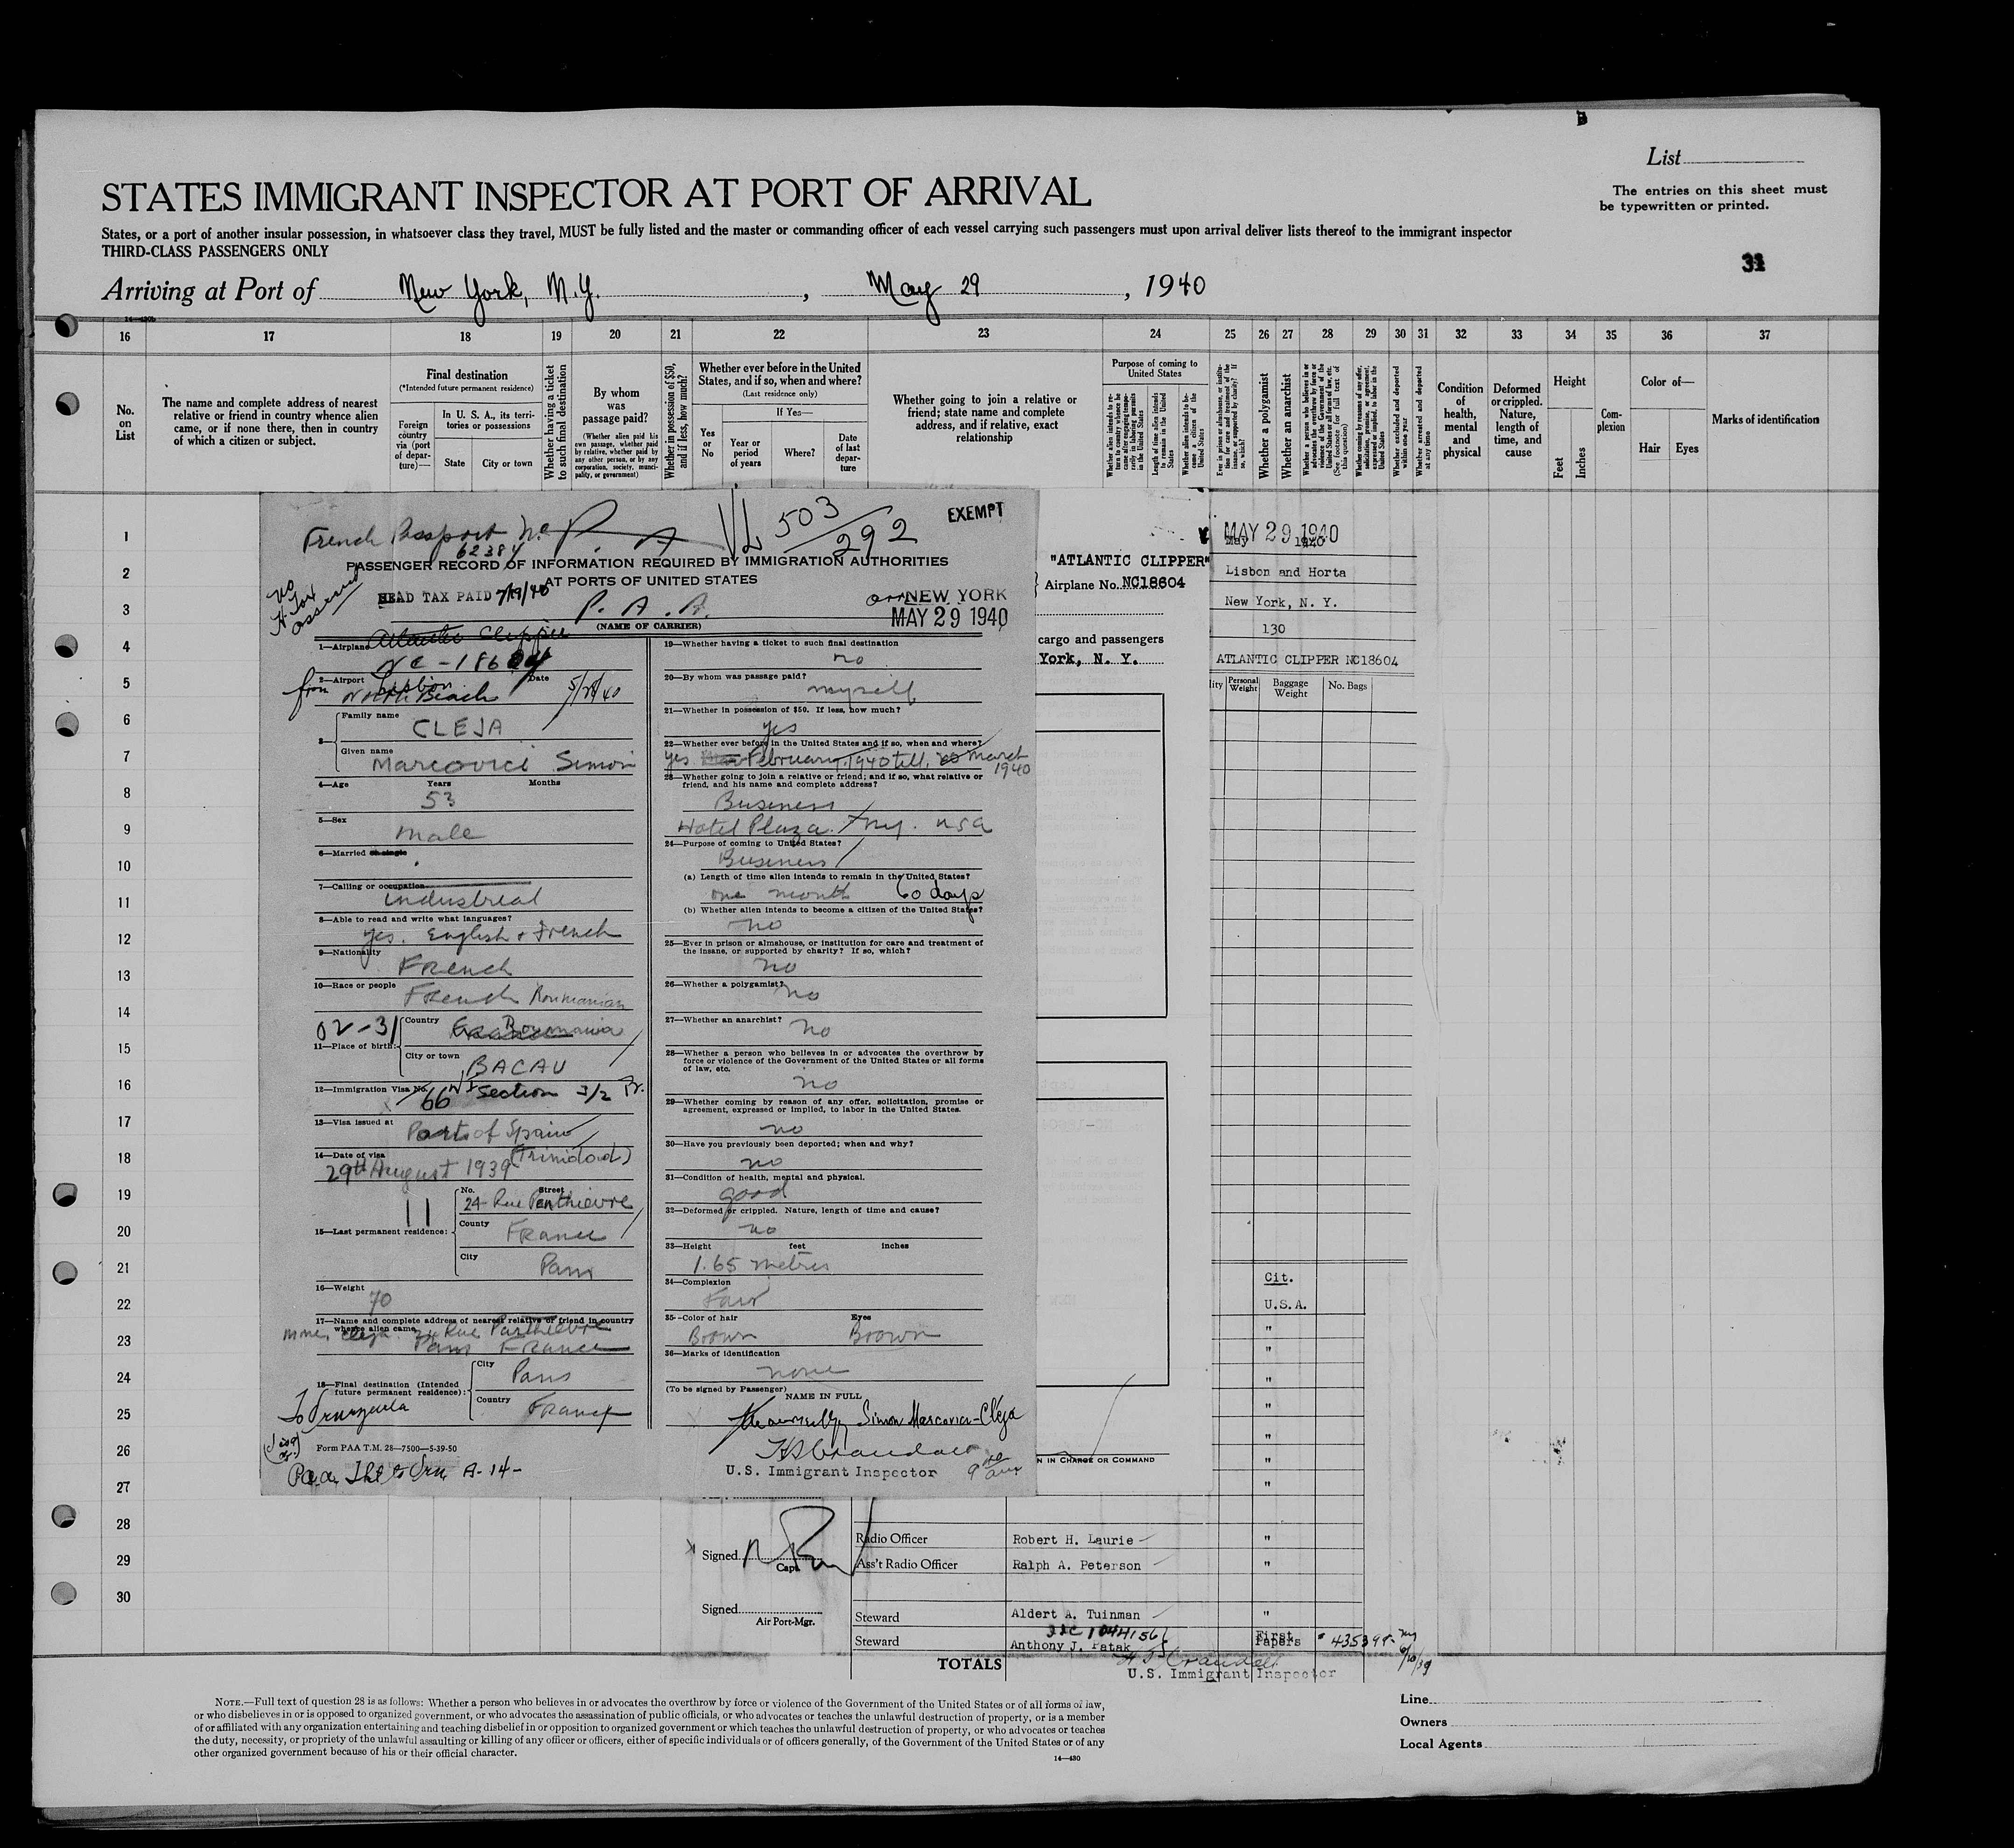 List
The entries on this sheet must
be typewritten or printed.
STATES IMMIGRANT INSPECTOR AT PORT OF ARRIVAL
States, or a port of another insular possession, in whatsoever class they travel, MUST be fully listed and the master or commanding officer of each vessel carrying such passengers must upon arrival deliver lists thereof to the immigrant inspector
THIRD-CLASS PASSENGERS ONLY
Arriving at Port of New York, N.Y., May 29, 1940
14—430b
16 17 18 19 20 21 22 23 24 25 26 27 28 29 30 31 32 33 34 35 36 37
No. on List
The name and complete address of nearest
relative or friend in country whence alien
came, or if none there, then in country
of which a citizen or subject.
Final destination
(*Intended future permanent residence)
Foreign country via (port of departure)—
In U. S. A., its territories or possessions
State City or town
Whether having a ticket to such final destination
By whom was passage paid?
(Whether alien paid his own passage, whether paid by relative, whether paid by any other person, or by any corporation, society, municipality, or government)
Whether in possession of $50, and if less, how much?
Whether ever before in the United States, and if so, when and where?
(Last residence only)
If Yes—
Yes or No
Year or period of years
Where?
Date of last departure
Whether going to join a relative or
friend; state name and complete
address, and if relative, exact
relationship
Purpose of coming to United States
Length of time alien intends to remain in the United States
Whether alien intends to become a citizen of the United States
Whether a polygamist
Whether an anarchist
(See footnote for full text of this question)
Whether excluded and deported within one year
Whether arrested and deported at any time
Condition of health, mental and physical
Deformed or crippled. Nature, length of time, and cause
Height
Feet Inches
Complexion
Color of—
Hair Eyes
Marks of identification
1
2
3
4
5
6
7
8
9
10
11
12
13
14
15
16
17
18
19
20
21
22
23
24
25
26
27
28
29
30
French Passport No
62384
503/292
EXEMPT
PASSENGER RECORD OF INFORMATION REQUIRED BY IMMIGRATION AUTHORITIES
AT PORTS OF UNITED STATES
HEAD TAX PAID 7/19/40
NEW YORK
P. A. A.
MAY 29 1940
(NAME OF CARRIER)
1—Airplane Atlantic Clipper
NC-18604
2—Airport Lisbon Date
from North Beach 5/28/40
3— Family name
CLEJA
Given name
Marcovici Simon
4—Age Years Months
53
5—Sex
male
6—Married or single
7—Calling or occupation
industrial
8—Able to read and write what languages?
yes. English + French
9—Nationality
French
10—Race or people
French Roumanian
02-31
11—Place of birth: Country
Roumania
City or town
BACAU
12—Immigration Visa No.
66 Section 3/2
13—Visa issued at
Port of Spain
(Trinidad)
14—Date of visa
29th August 1939
15—Last permanent residence: No. Street
24 Rue Penthievre
County
France
City
Paris
16—Weight
70
17—Name and complete address of nearest relative or friend in country
whence alien came
Mme. Cleja. 24 Rue Penthievre
Paris France
18—Final destination (Intended
future permanent residence): City
Paris
Country
France
Form PAA T.M. 28—7500—5-39-50
19—Whether having a ticket to such final destination
no
20—By whom was passage paid?
myself
21—Whether in possession of $50. If less, how much?
yes
22—Whether ever before in the United States and if so, when and where?
yes February 1940 till March
1940
23—Whether going to join a relative or friend; and if so, what relative or
friend, and his name and complete address?
Business
Hotel Plaza N.Y. USA
24—Purpose of coming to United States?
Business
(a) Length of time alien intends to remain in the United States?
one month 60 days
(b) Whether alien intends to become a citizen of the United States?
no
25—Ever in prison or almshouse, or institution for care and treatment of
the insane, or supported by charity? If so, which?
no
26—Whether a polygamist?
no
27—Whether an anarchist?
no
28—Whether a person who believes in or advocates the overthrow by
force or violence of the Government of the United States or all forms
of law, etc.
no
29—Whether coming by reason of any offer, solicitation, promise or
agreement, expressed or implied, to labor in the United States.
no
30—Have you previously been deported; when and why?
no
31—Condition of health, mental and physical.
good
32—Deformed or crippled. Nature, length of time and cause?
no
33—Height feet inches
1.65 metres
34—Complexion
Fair
35—Color of hair Eyes
Brown Brown
36—Marks of identification
none
(To be signed by Passenger)
NAME IN FULL
Simon Marcovici-Cleja
U.S. Immigrant Inspector
"ATLANTIC CLIPPER"
Airplane No. NC18604
cargo and passengers
York, N. Y.
MAY 29 1940
Lisbon and Horta
New York, N. Y.
130
ATLANTIC CLIPPER NC18604
Personal Weight Baggage Weight No. Bags
Cit.
U.S.A.
"
"
"
"
"
"
"
N IN CHARGE OR COMMAND
Signed
Capt.
Signed
Air Port-Mgr.
Radio Officer Robert H. Laurie "
Ass't Radio Officer Ralph A. Peterson "
Steward Aldert A. Tuinman "
Steward Anthony J. Patak First Papers
TOTALS
U.S. Immigrant Inspector
NOTE.—Full text of question 28 is as follows: Whether a person who believes in or advocates the overthrow by force or violence of the Government of the United States or of all forms of law,
or who disbelieves in or is opposed to organized government, or who advocates the assassination of public officials, or who advocates or teaches the unlawful destruction of property, or is a member
of or affiliated with any organization entertaining and teaching disbelief in or opposition to organized government or which teaches the unlawful destruction of property, or who advocates or teaches
the duty, necessity, or propriety of the unlawful assaulting or killing of any officer or officers, either of specific individuals or of officers generally, of the Government of the United States or of any
other organized government because of his or their official character.
14—430
Line
Owners
Local Agents